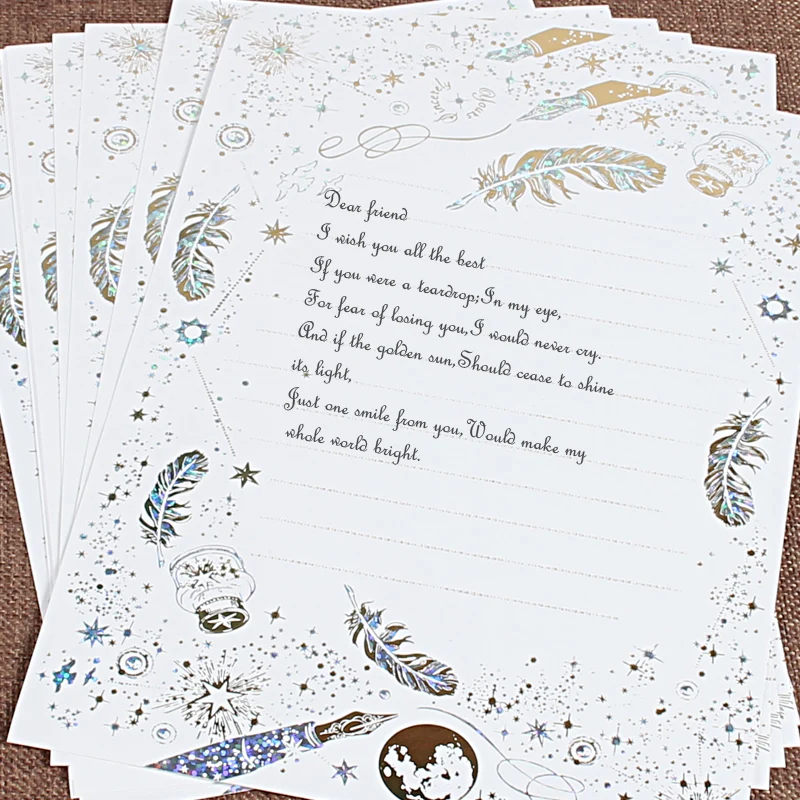 Dear friend
I wish you all the best
If you were a teardrop;In my eye,
For fear of losing you,I would never cry.
And if the golden sun,Should cease to shine
its light,
Just one smile from you,Would make my
whole world bright.